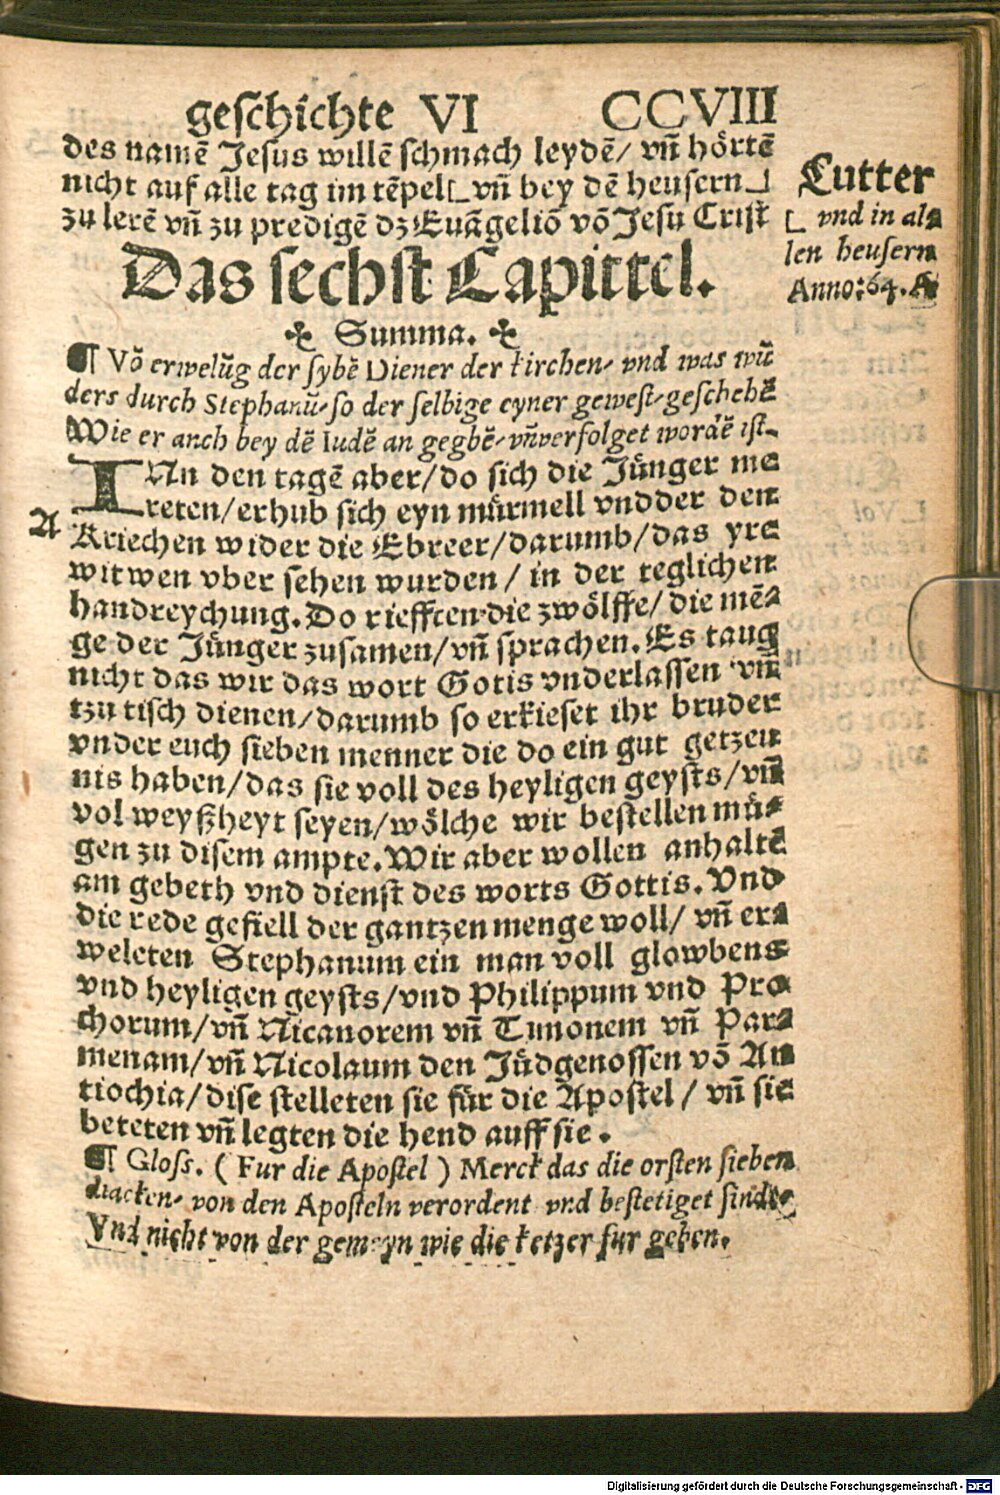 geschichte VI CCVIII
des namē Jesus willē schmach leydē/ vñ hörtē
nicht auf alle tag im tēpel⌊ vñ bey dē heusern⌋
zu lerē vñ zu predigē dz Euāgeliō vō Jesu Crist
Lutter
⌊ vnd in al⸗
len heusern
Anno: 64. A
Das sechst Capittel.
✣ Summa. ✣
¶ Vō erwelūg der sybē Diener der kirchen/ vnd was wū
ders durch Stephanū/ so der selbige eyner gewest/ geschehē
Wie er anch bey dē Iudē an gegbē/ vñ verfolget wordē ist.
A
IN den tagē aber/ do sich die Jünger me
reten/ erhub sich eyn mürmell vndder den
Kriechen wider die Ebreer/ darumb/ das yre
witwen vber sehen wurden/ in der teglichen
handreychung. Do riefften die zwölffe/ die mē⸗
ge der Jünger zusamen/ vñ sprachen. Es taug
nicht das wir das wort Gotis vnderlassen vñ
tzu tisch dienen/ darumb so erkieset ihr bruder
vnder euch sieben menner die do ein gut getzeu
nis haben/ das sie voll des heyligen geysts/ vñ
vol weyßheyt seyen/ wölche wir bestellen mü⸗
gen zu disem ampte. Wir aber wollen anhaltē
am gebeth vnd dienst des worts Gottis. Vnd
die rede gefiell der gantzen menge woll/ vñ er⸗
weleten Stephanum ein man voll glowbens
vnd heyligen geysts/ vnd Philippum vnd Pro
chorum/ vñ Nicanorem vñ Timonem vñ Par⸗
menam/ vñ Nicolaum den Jüdgenossen vō An
tiochia/ dise stelleten sie für die Apostel/ vñ sie
beteten vñ legten die hend auff sie.
¶ Gloss. ( Fur die Apostel ) Merck das die orsten sieben
diacken/ von den Aposteln verordent vnd bestetiget sindt
Vnd nicht von der gemeyn wie die ketzer fur geben.
Digitalisierung gefördert durch die Deutsche Forschungsgemeinschaft - DFG